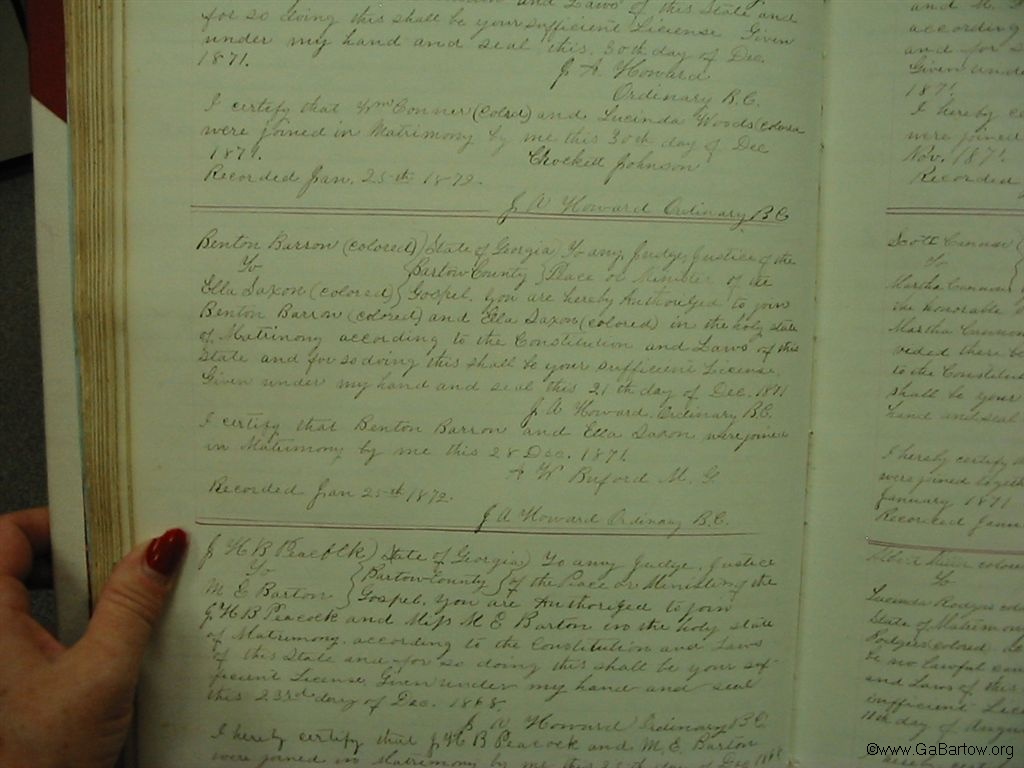 and Laws of this State and
for so doing this shall be your sufficient License Given
under my hand and seal this, 30th day of Dec
1871.
J A Howard
Ordinary B.C.
I certify that Wm Conner (colred) and Lucinda Woods (colored
were joined in Matrimony by me this 30th day of Dec
1871.
Chockell Johnson
Recorded Jan, 25th 1872.
J A Howard Ordinary B C
Benton Barron (colored) State of Georgia To any Judge, Justice of the
To Bartow County Peace or Minister of the
Ella Saxon (colored) Gospel. You are hereby Authorized to join
Benton Barron (colored) and Ella Saxon (colored) in the holy state
of Matrimony according to the Constitution and Laws of this
State and for so doing this shall be your sufficient License.
Given under my hand and seal this 21th day of Dec. 1871
J. A Howard. Ordinary B.C.
I certify that Benton Barron and Ella Saxon were joined
in Matrimony by me this 28 Dec. 1871.
A W Buford M. G.
Recorded Jan 25th 1872.
J A Howard Ordinary B.C.
J H B Peacock State of Georgia To any Judge, Justice
To Bartow County of the Peace or Minister of the
M E Barton Gospel. You are Authorized to join
J H B Peacock and Miss M E Barton in the holy state
of Matrimony. according to the Constitution and Laws
of this State and for so doing this shall be your suf-
ficient License Given under my hand and seal
this 23rd day of Dec. 1868.
J A Howard Ordinary B C
I hereby certify that J H B Peacock and M E Barton
were joined in Matrimony by me this day of Dec
according
and for s
Given unde
1871
I hereby ce
were joined
Nov. 1871
Recorded
Scott Cannon
To
Martha Cannon
the honorable
Martha Cannon
vided there be
to the Constitu
shall be your
hand and seal
I hereby certify
were joined togeth
January 1871
Recorded Janu
To
Lucinda Rodgers
State of Matrimon
Rodgers colored
be no lawful
and Laws of this
sufficient Lice
11th day of Augu
©www.GaBartow.org